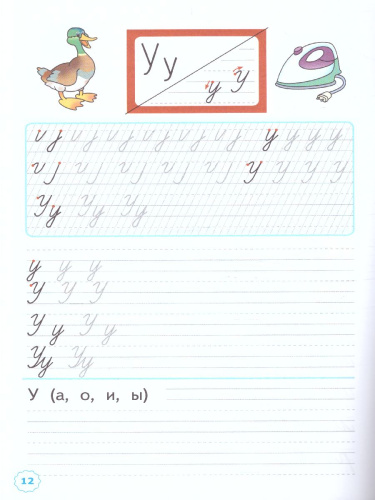 Уу
у У
у у у у
У У У У
Уу Уу Уу
у у у
У У У
У у У у
Уу Уу
У (а, о, и, ы)
12